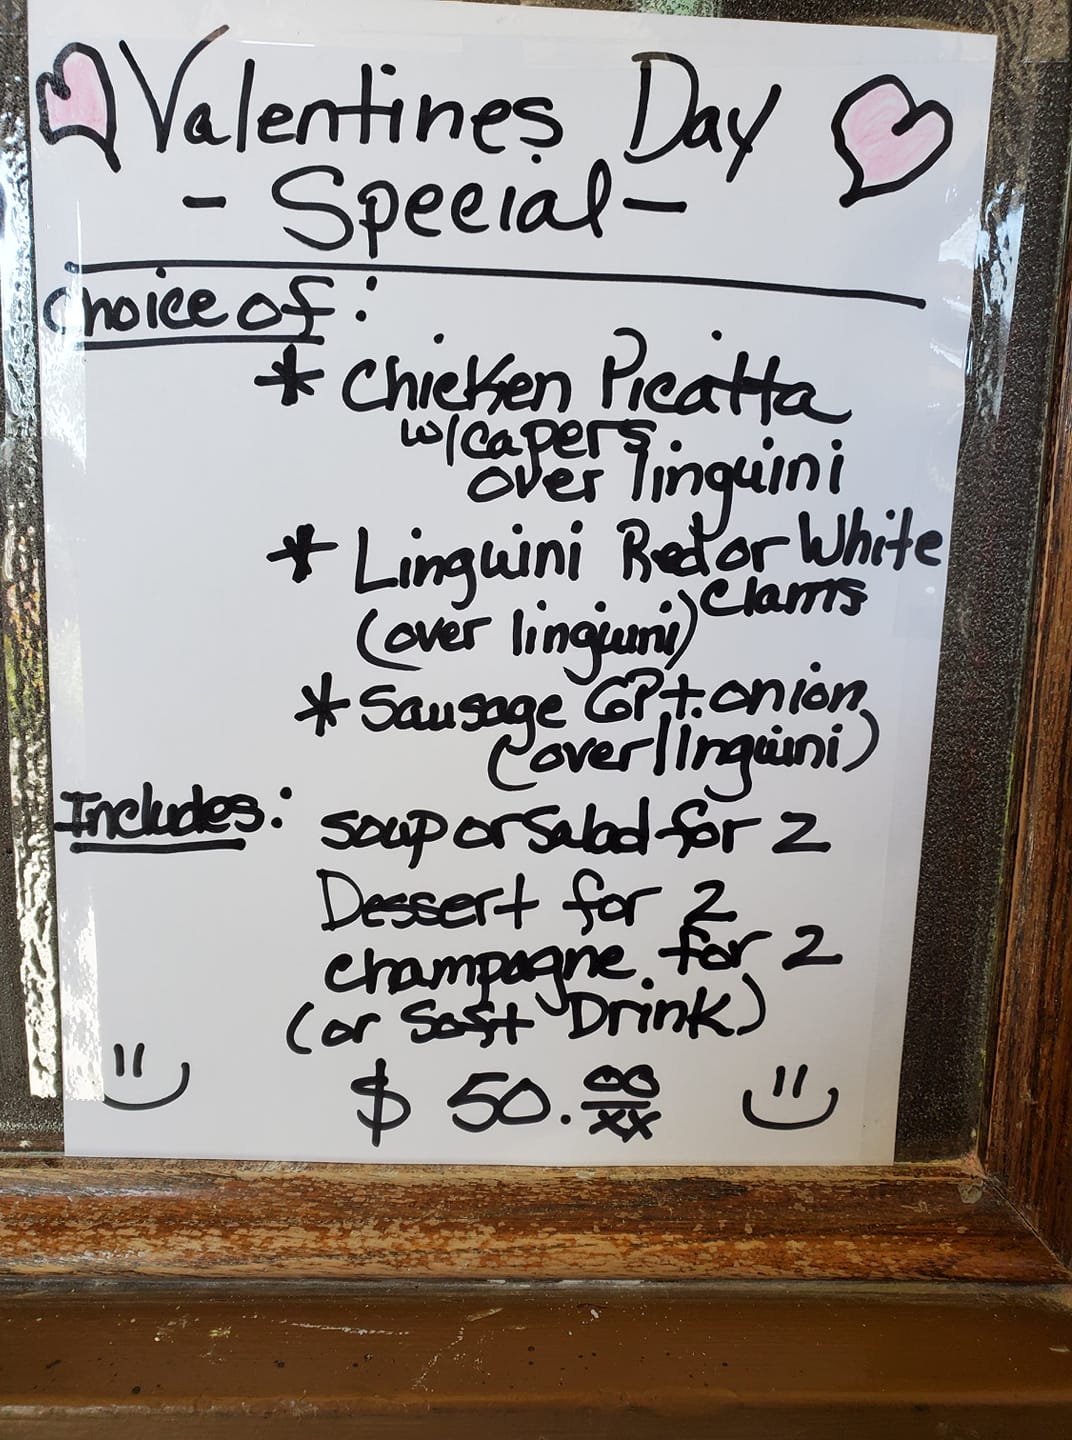 Valentines Day
- Special -
Choice of:
* Chicken Picatta
w/capers
over linguini
* Linguini Red or White
Clams
(over linguini)
* Sausage GP + onion
(over linguini)
Includes: soup or Salad for 2
Dessert for 2
champagne for 2
(or Soft Drink)
$ 50. 00/xx